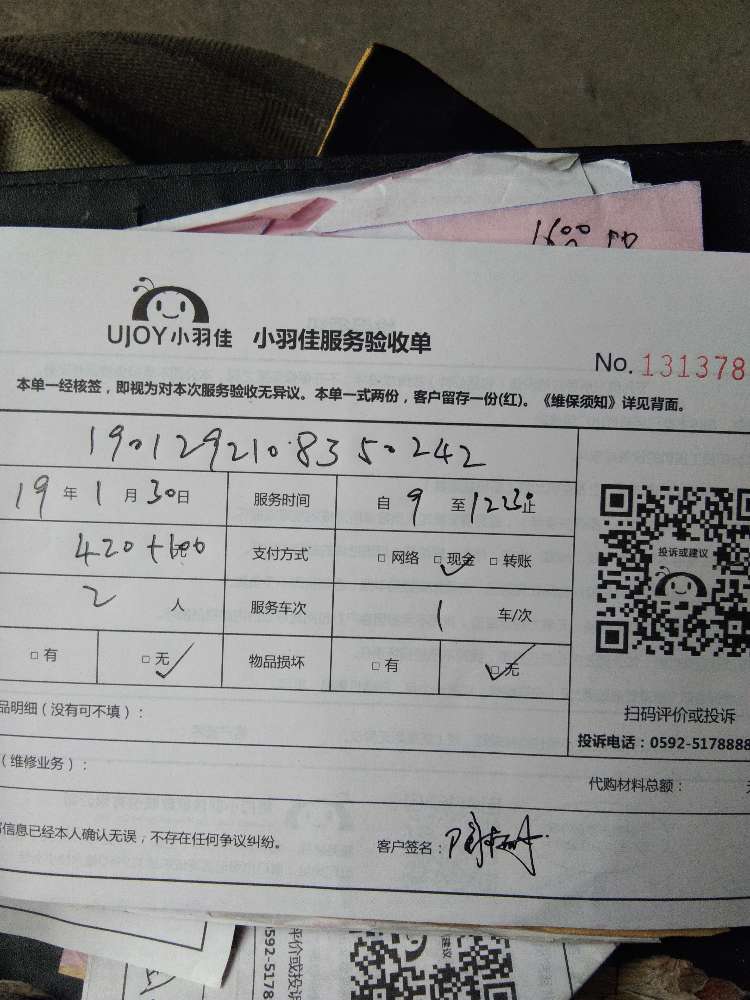 1600
UJOY小羽佳 小羽佳服务验收单
No. 131378
本单一经核签，即视为对本次服务验收无异议。本单一式两份，客户留存一份(红)。《维保须知》详见背面。
1901292108350242
19年1月30日 服务时间 自9至12 止
420+100 支付方式 □网络 □现金 □转账
2人 服务车次 1 车/次
□有 □无 物品损坏 □有 □无
投诉或建议
品明细（没有可不填）：
扫码评价或投诉
投诉电话：0592-5178888
（维修业务）：
代购材料总额：
信息已经本人确认无误，不存在任何争议纠纷。
客户签名：
评价或投诉
592-5178
建议